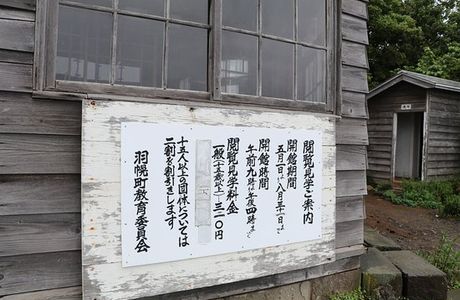 閲覧見学ご案内
開館期間
五月一日~八月三十一日まで
開館時間
午前九時~午後四時まで
閲覧見学料金
一般(十五歳以上)三二〇円
十五人以上の団体については
二割を割引きします
羽幌町教育委員会